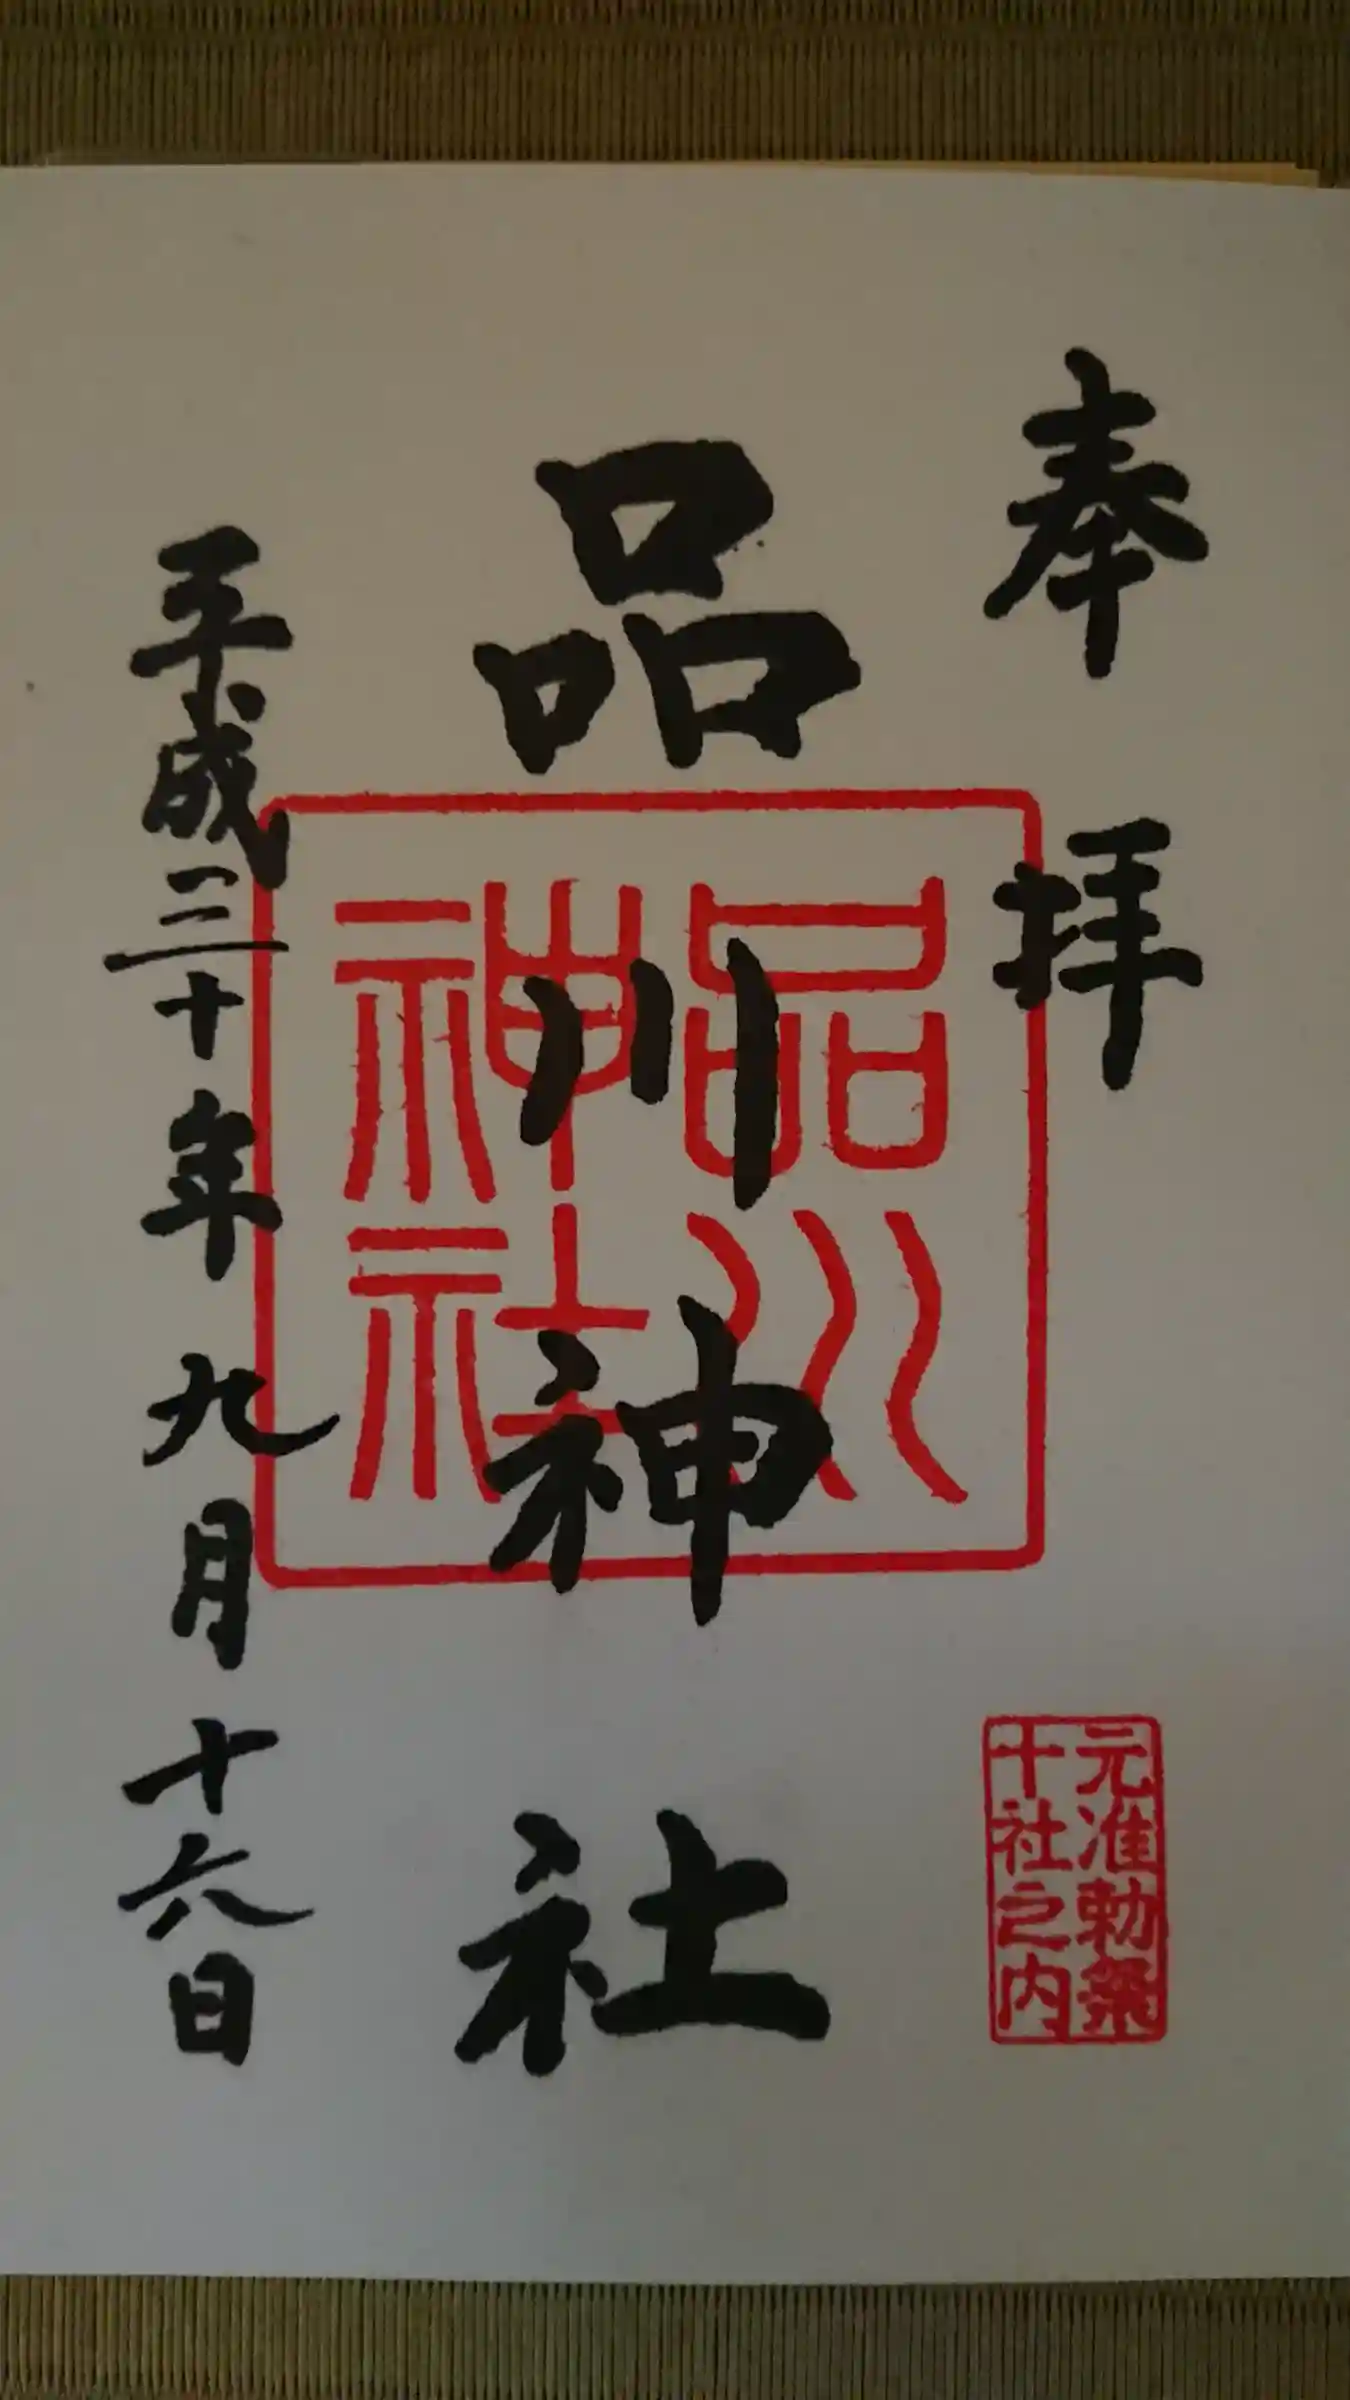 奉拝
元准勅祭
十社之内
品川神社
品川
神社
平成三十年九月十六日